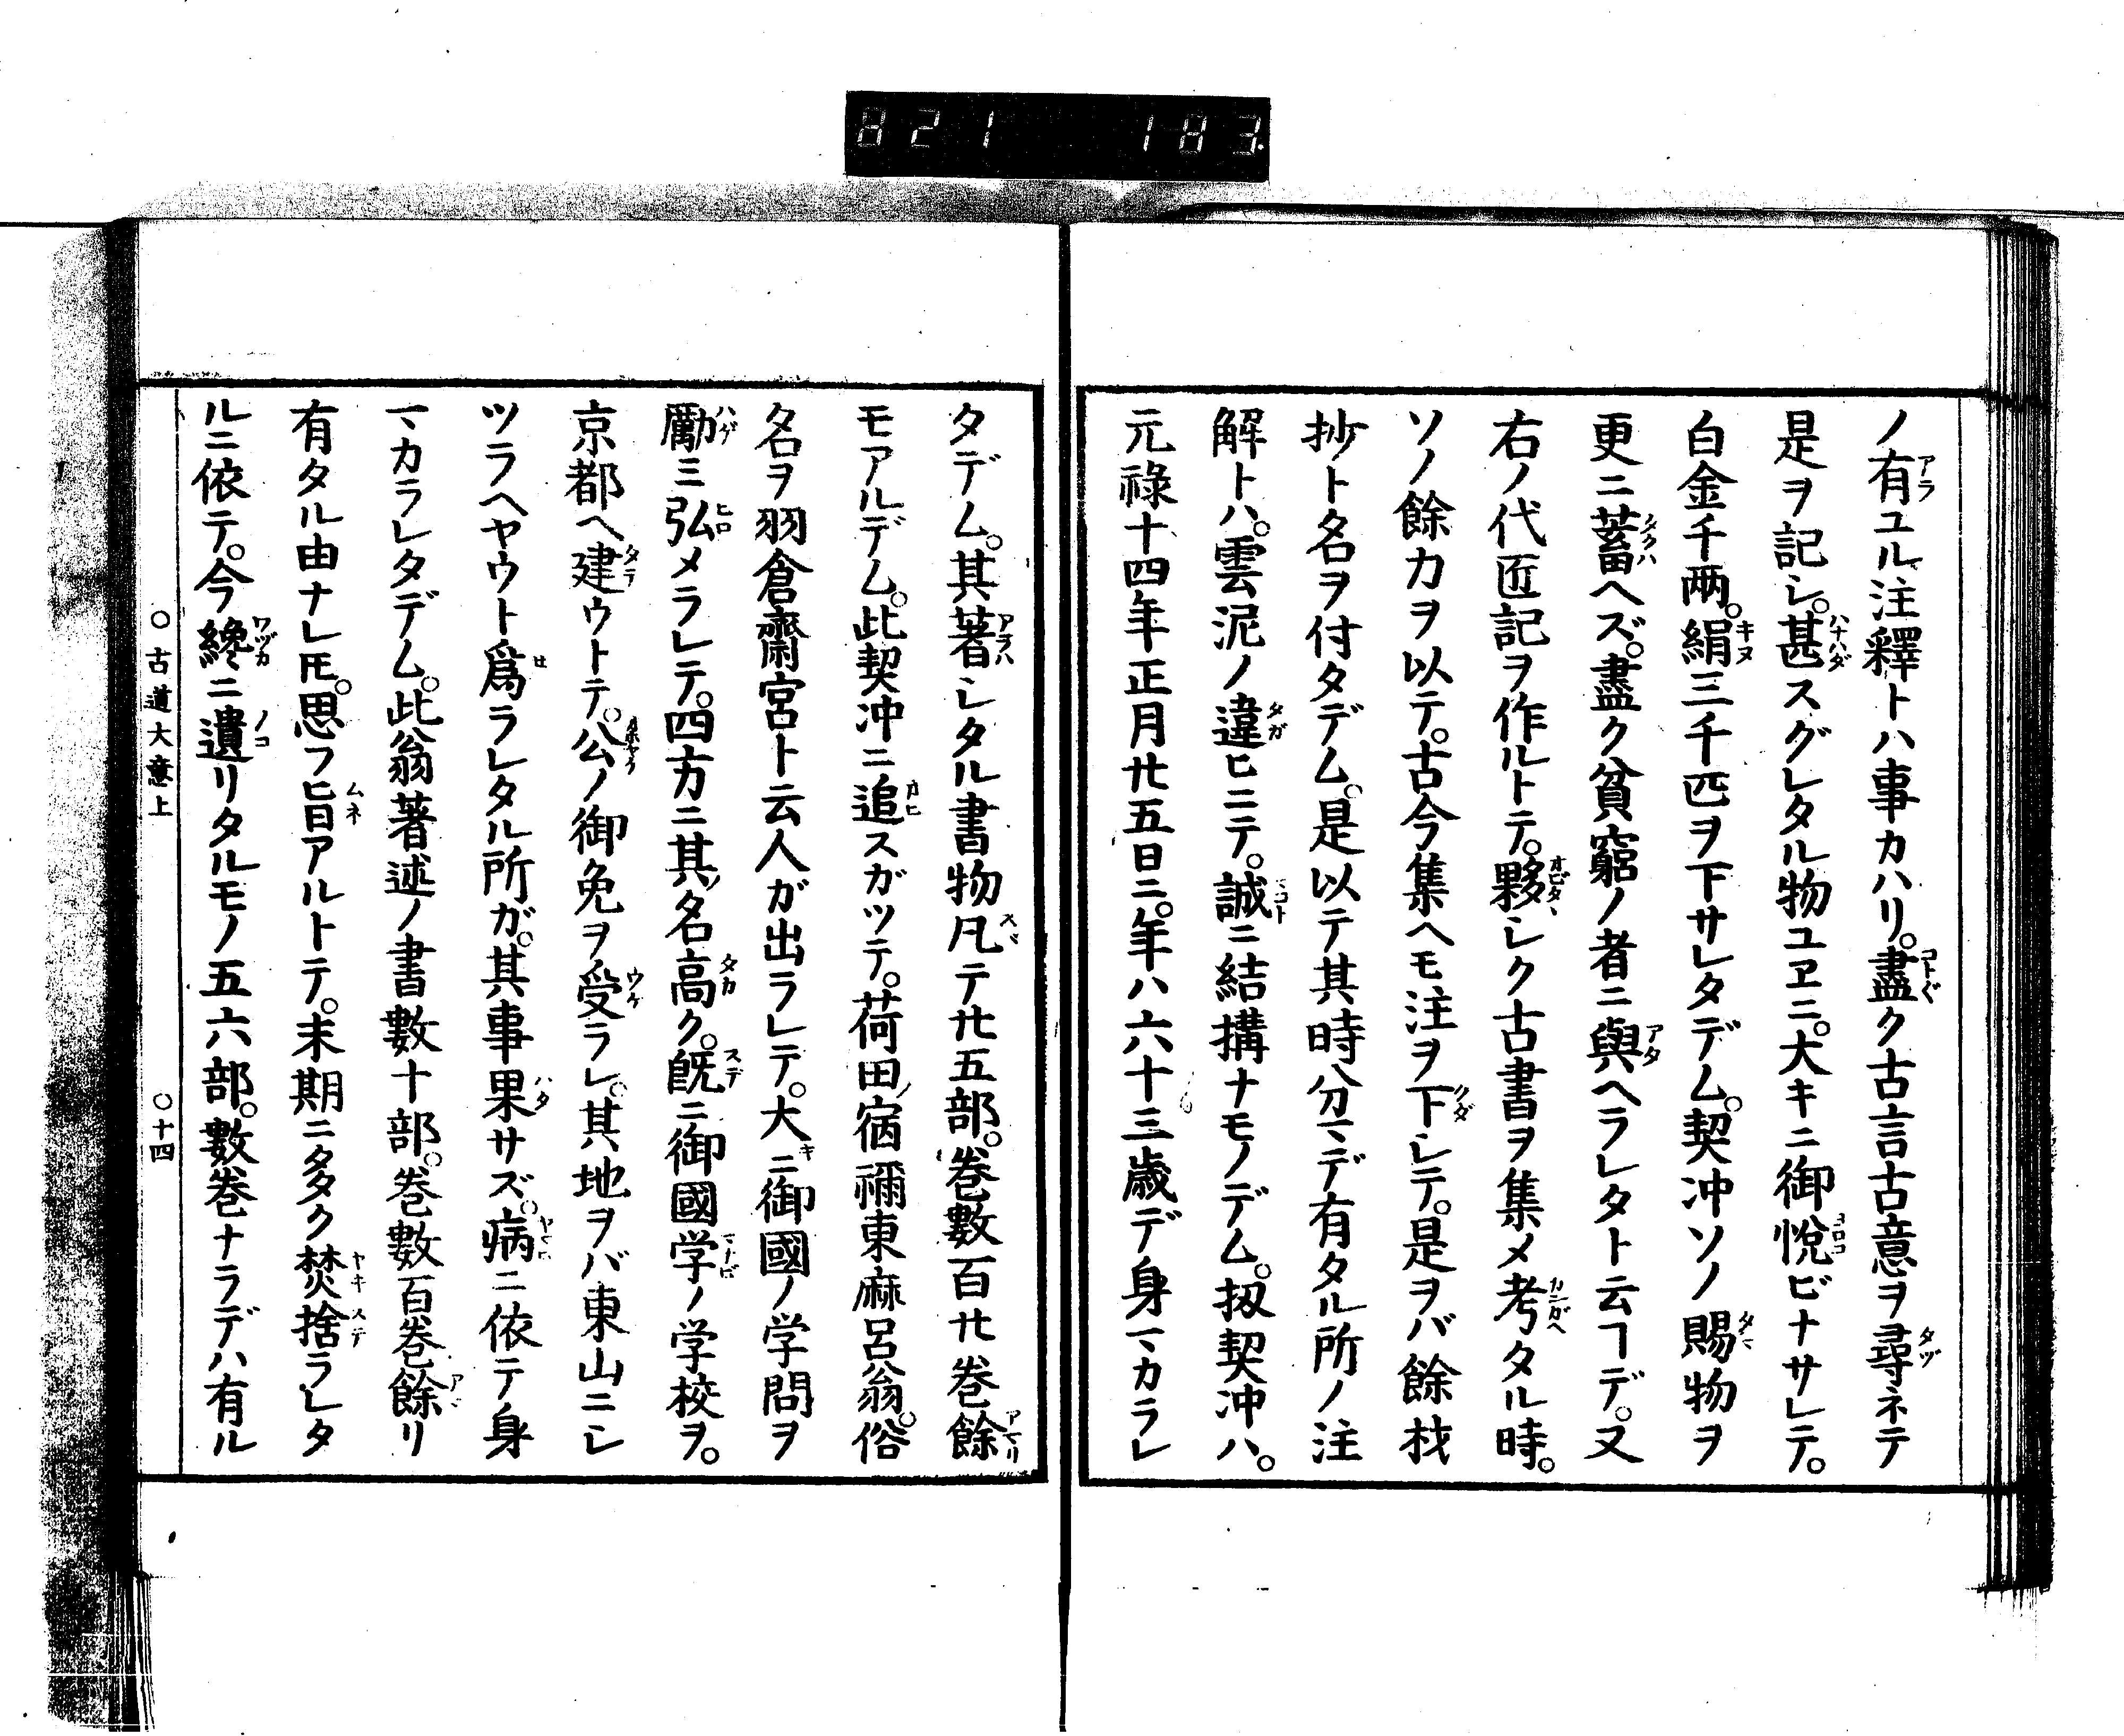 821 183
ノ有ユル注釋トハ事カハリ。盡ク古言古意ヲ尋ネテ
是ヲ記シ。甚スグレタル物ユヱニ。大キニ御悅ビナサレテ。
白金千両。絹三千匹ヲ下サレタデム。契冲ソノ賜物ヲ
更ニ蓄ヘズ。盡ク貧窮ノ者ニ與ヘラレタト云ヿデ。又
右ノ代匠記ヲ作ルトテ。夥シク古書ヲ集メ考タル時。
ソノ餘力ヲ以テ。古今集ヘモ注ヲ下シテ。是ヲバ餘材
抄ト名ヲ付タデム。是以テ其時分マデ有タル所ノ注
解トハ。雲泥ノ違ヒニテ。誠ニ結構ナモノデム。扨契冲ハ。
元祿十四年正月廿五日ニ。年ハ六十三歲デ身マカラレ
タデム。其著シタル書物凡テ廿五部。巻數百廿巻餘
モアルデム。此契冲ニ追スガツテ。荷田ノ宿禰東麻呂翁。俗
名ヲ羽倉齋宮ト云人ガ出ラレテ。大ニ御國ノ学問ヲ
勵ミ弘メラレテ。四方ニ其ノ名高ク。既ニ御國学ノ学校ヲ。
京都ヘ建ウトテ。公ノ御免ヲ受ラレ。其地ヲバ東山ニシ
ツラヘヤウト爲ラレタル所ガ。其事果サズ。病ニ依テ身
マカラレタデム。此翁著述ノ書數十部。巻數百巻餘リ
有タル由ナレ𪜈。思フ旨アルトテ。末期ニ多ク焚捨ラレタ
ルニ依テ。今纔ニ遺リタルモノ五六部。數巻ナラデハ有ル
○古道大意上 ○十四